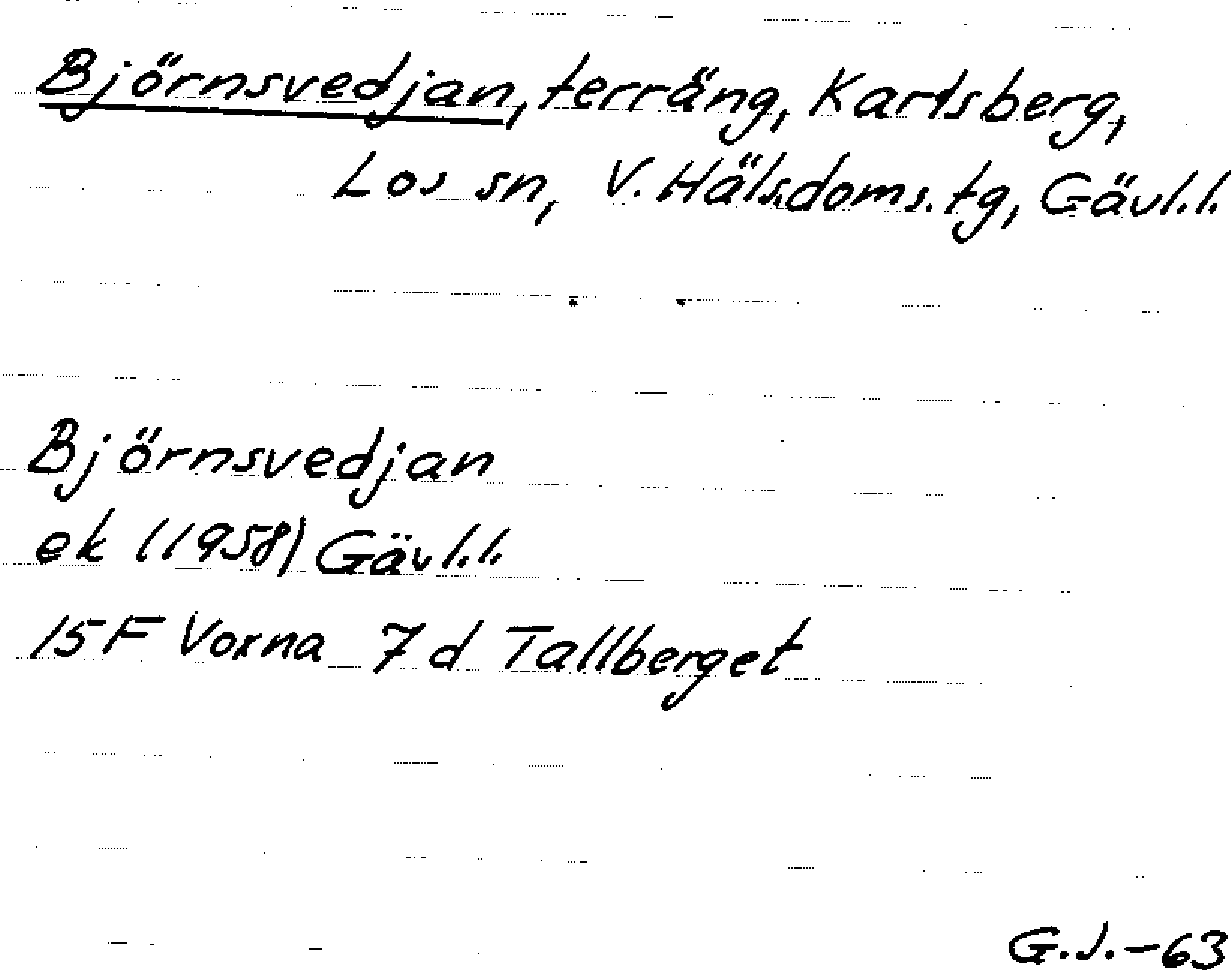 Björnsvedjan, terräng, Karlsberg,
Los sn, V. Häls.doms.tg, Gävl.l.
Björnsvedjan
ek (1958) Gävl.l.
15F Voxna 7d Tallberget
G.J.-63